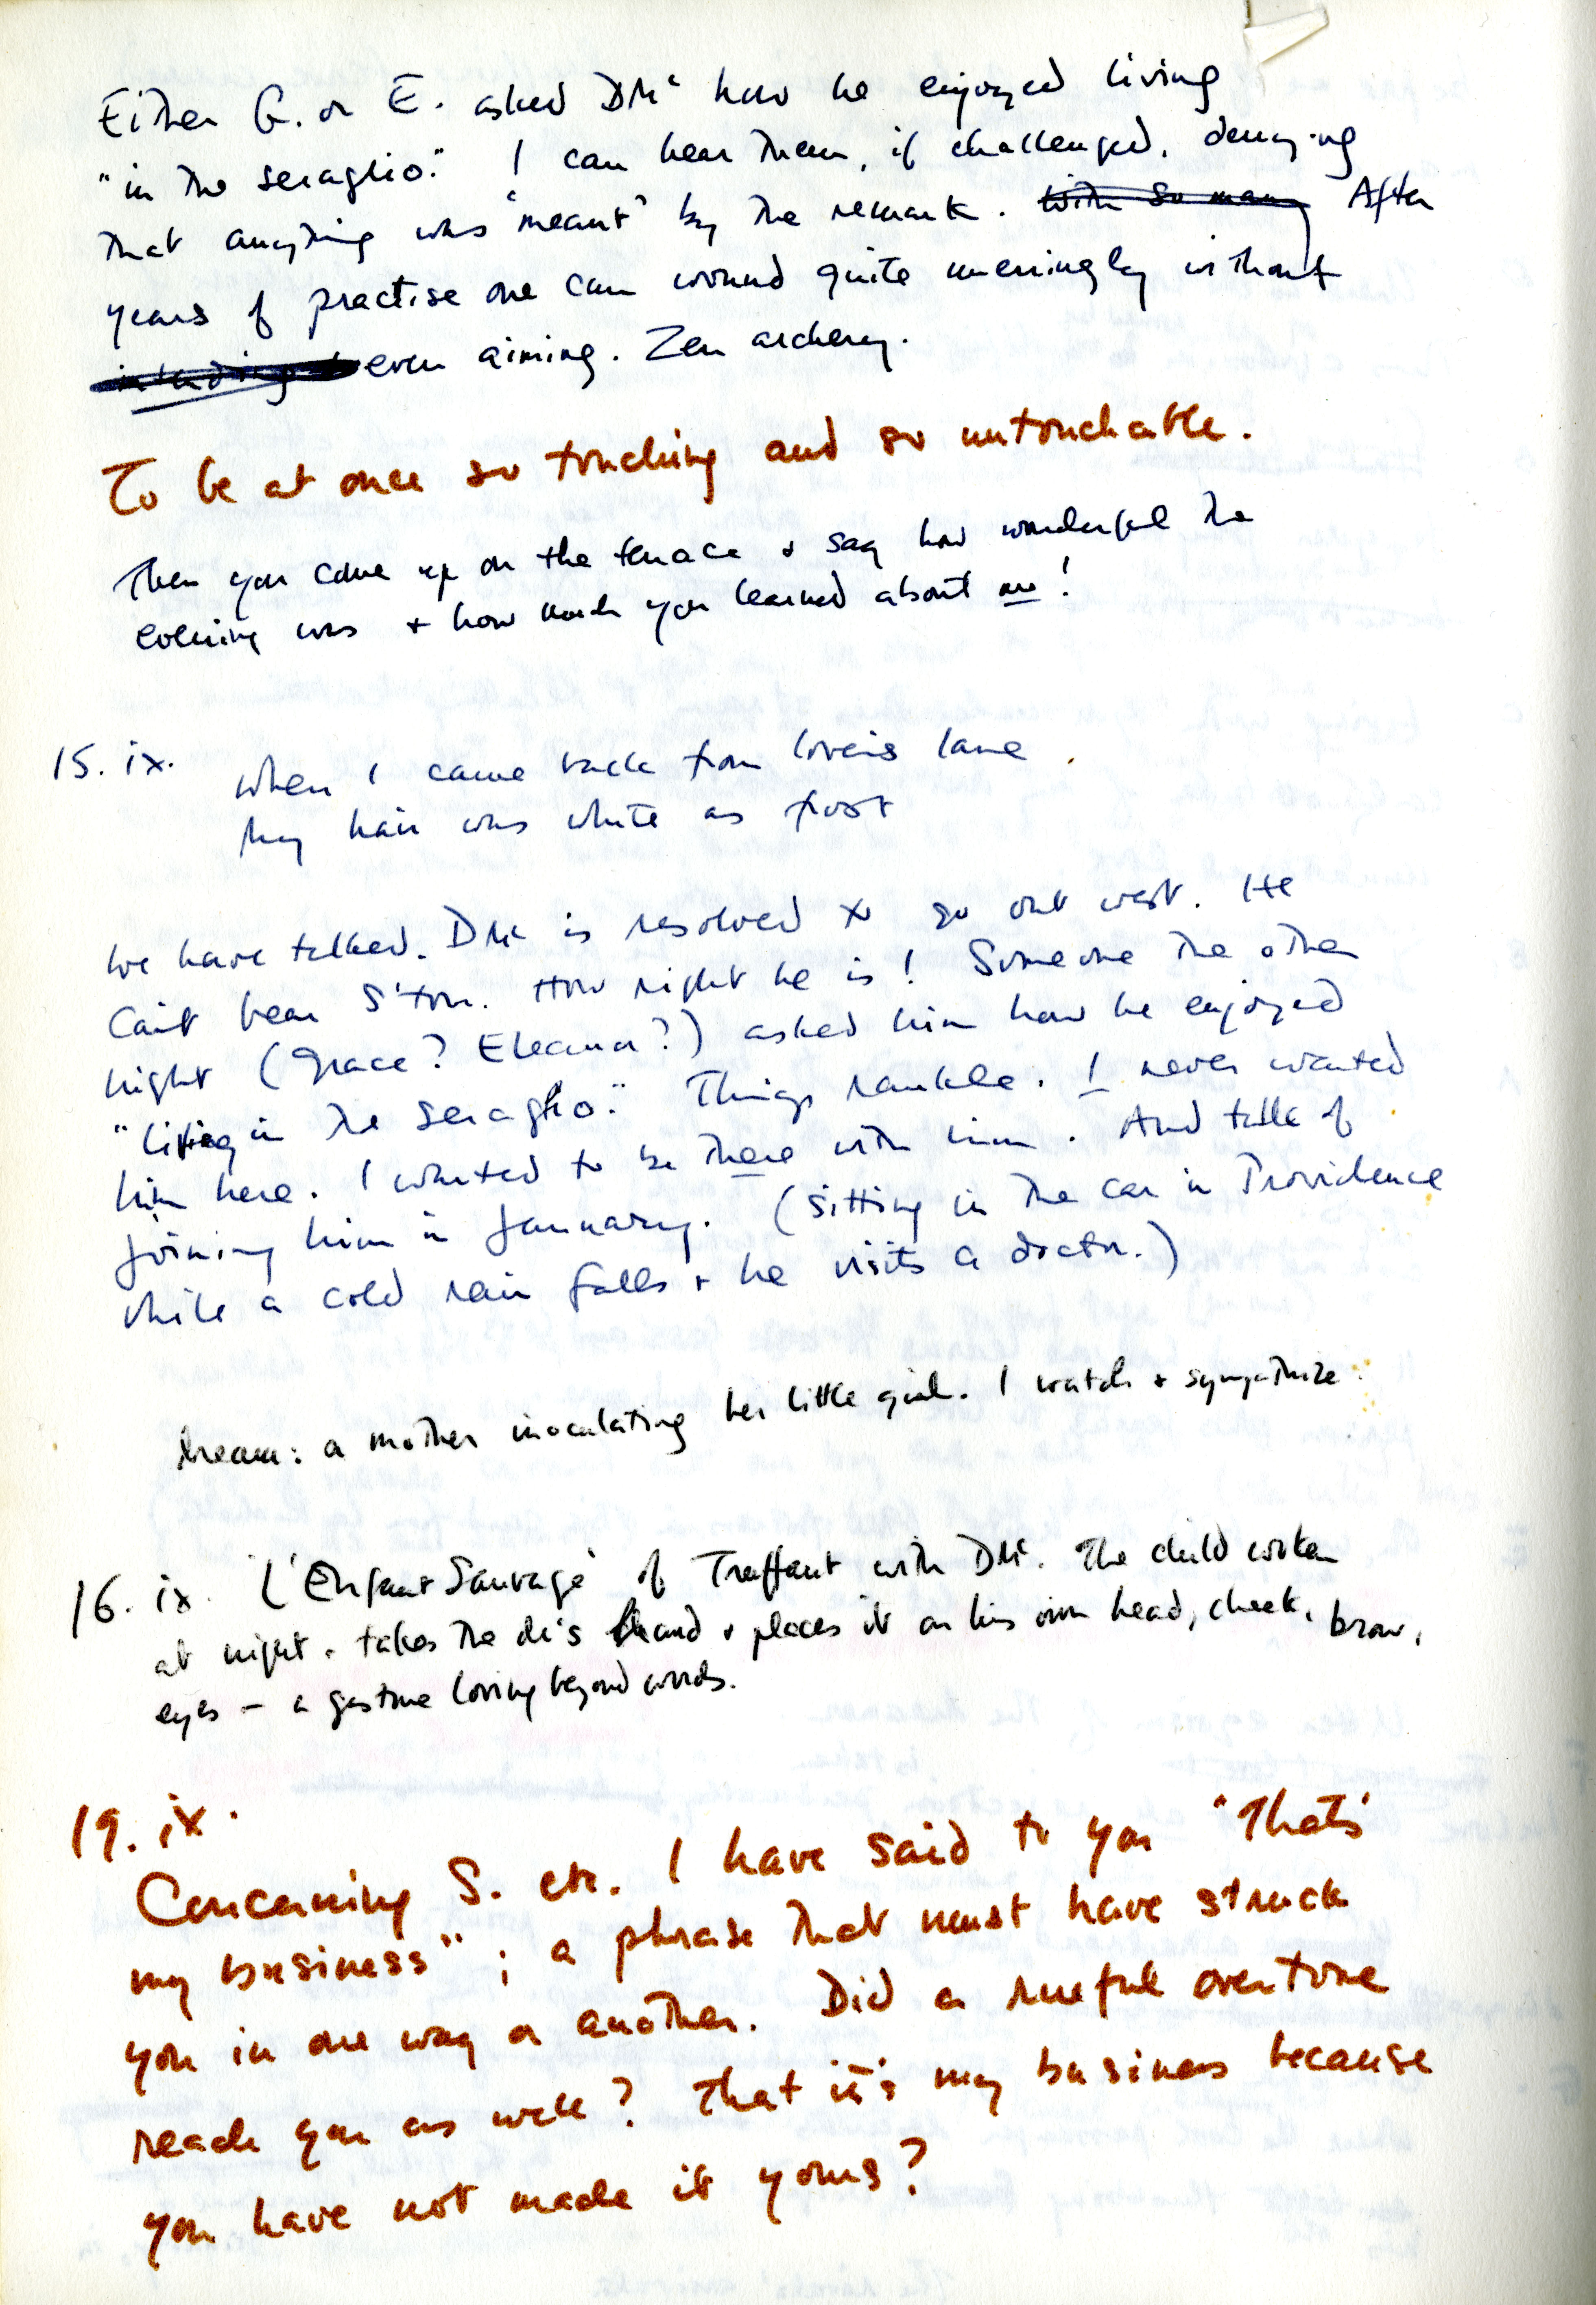 Either G. or E. asked DMc how he enjoyed living
"in the seraglio." I can hear them, if challenged, denying
that anything was 'meant' by the remark. With so many After
years of practise one can wound quite unerringly without
intending even aiming. Zen archery.
To be at once so touching and so untouchable.
Then you come up on the terrace & say how wonderful the
evening was & how much you learned about me!
15. ix. When I came back from lover's lane
My hair was white as frost
We have talked. DMc is resolved to go out west. He
can't bear S'ton. How right he is! Someone the other
night (Grace? Eleanor?) asked him how he enjoyed
"living in the seraglio." Things rankle. I never wanted
him here. I wanted to be there with him. And talk of
joining him in January. (Sitting in the car in Providence
while a cold rain falls & he visits a doctor.)
Dream: a mother inoculating her little girl. I watch & sympathize.
16. ix. 'L'Enfant Sauvage' of Truffaut with DMc. The child woken
at night. takes the dr's hand & places it on his own head, cheek, brow,
eyes – a gesture loving beyond words.
19. ix.
Concerning S. etc. I have said to you "That's
my business"; a phrase that must have struck
you in one way or another. Did a rueful overtone
reach you as well? That it's my business because
you have not made it yours?